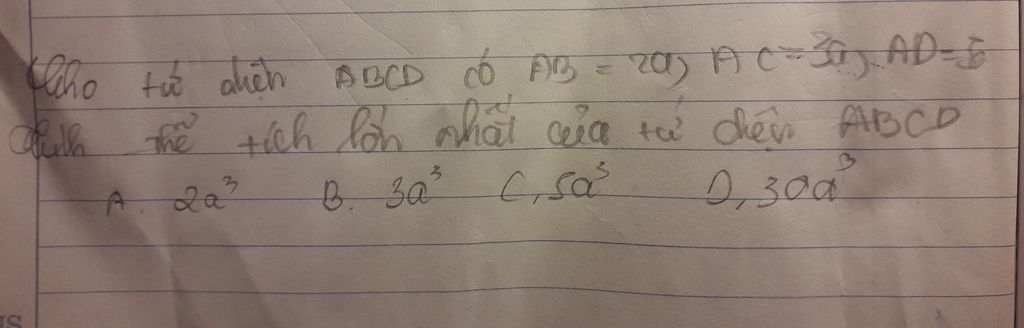 Cho tứ diện ABCD có AB = 2a, AC = 3a, AD =
tính thể tích lớn nhất của tứ diện ABCD
A. 2a³ B. 3a³ C, 5a³ D, 30a³